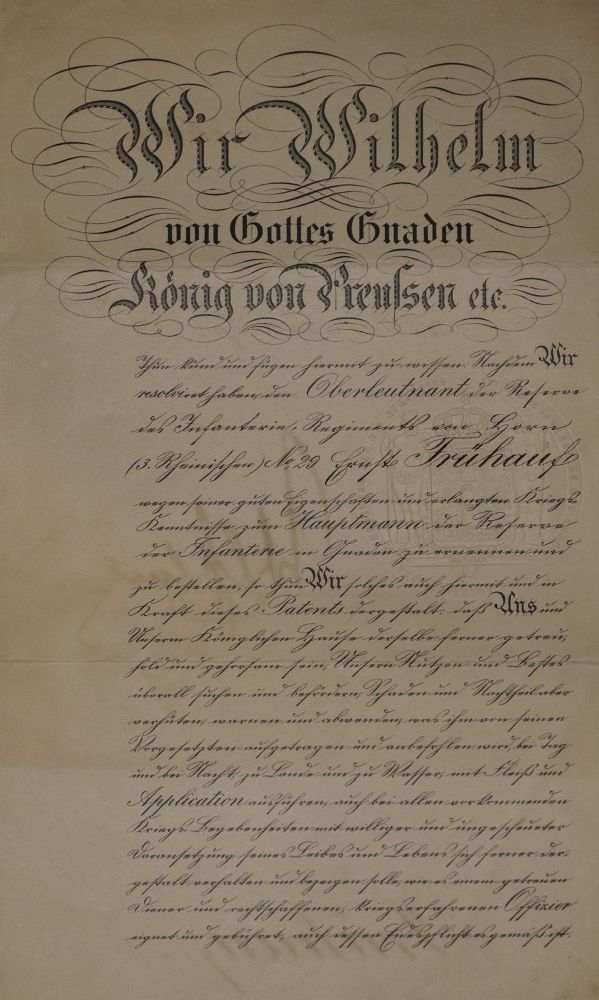 Wir Wilhelm
von Gottes Gnaden
König von Preussen etc.
Thun kund und fügen hiermit zu wissen: Nachdem Wir
resolviret haben, den Oberleutnant der Reserve
des Infanterie-Regiments von Horn
(3. Rheinischen) No 29 Ernst Frühauf
wegen seiner guten Eigenschaften und erlangten Kriegs-
Kenntnisse zum Hauptmann der Reserve
der Infanterie in Gnaden zu ernennen und
zu bestellen, so thun Wir solches auch hiermit und in
Kraft dieses Patents dergestalt: daß Uns und
Unserm Königlichen Hause derselbe ferner getreu,
hold und gehorsam sein, Unsern Nutzen und Bestes
überall suchen und befördern, Schaden und Nachtheil aber
verhüten, warnen und abwenden, was ihm von seinen
Vorgesetzten aufgetragen und anbefohlen wird, bei Tag
und bei Nacht, zu Lande und zu Wasser, mit Fleiß und
Application ausführen, auch bei allen vorkommenden
Kriegs-Begebenheiten mit williger und ungescheueter
Daransetzung seines Leibes und Lebens sich ferner der-
gestalt verhalten und bezeigen solle, wie es einem getreuen
Diener und rechtschaffenen, kriegserfahrenen Offizier
eignet und gebühret, auch dessen Eidespflicht es gemäß ist.